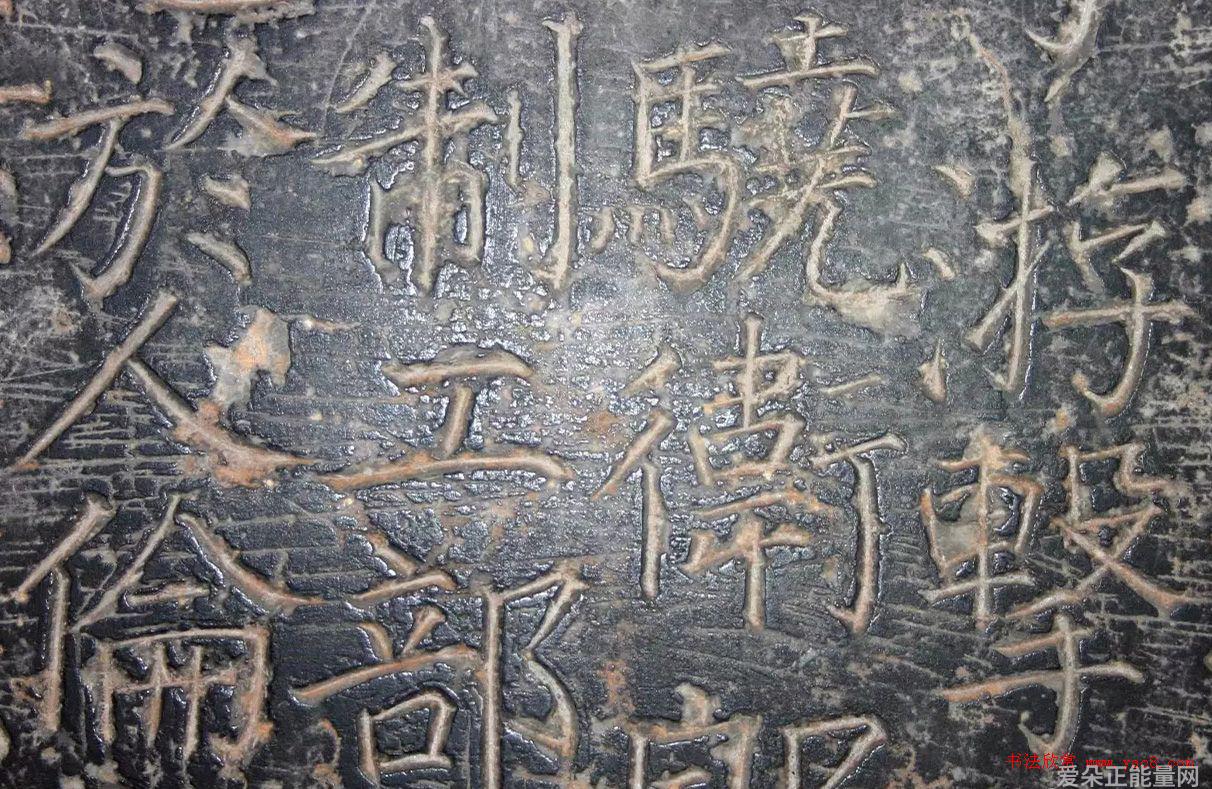 將擊
驍衛郎
制工部
於人倫
书法欣赏 www.yac8.com
爱朵正能量网